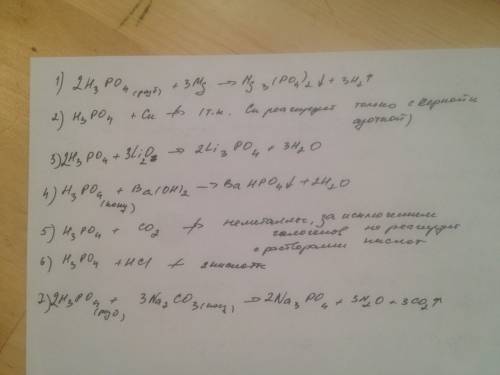 1) 2H3PO4 (разб) + 3Mg → Mg3(PO4)2↓ + 3H2↑
2) H3PO4 + Cu ↛ (т.к. Cu реагирует только с серной и
азотной)
3) 2H3PO4 + 3Li2O → 2Li3PO4 + 3H2O
4) H3PO4 (конц) + Ba(OH)2 → BaHPO4↓ + 2H2O
5) H3PO4 + CO2 ↛ неметаллы, за исключением
галогенов не реагируют
с растворами кислот
6) H3PO4 + HCl ↛ 2 кислоты
7) 2H3PO4 (разб) + 3Na2CO3 (конц) → 2Na3PO4 + 3H2O + 3CO2↑